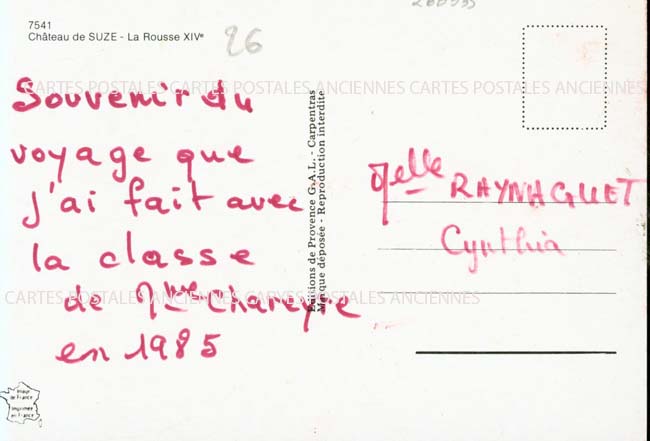 7541
Château de SUZE - La Rousse XIVᵉ
26
CARTES POSTALES ANCIENNES CARTES POSTALES ANCIENNES
Souvenir du
voyage que
j'ai fait avec
la classe
de Mme Chareyre
en 1985
Editions de Provence G.A.L. - Carpentras
Marque déposée - Reproduction interdite
Melle RAYNAGUET
Cynthia
CARTES POSTALES ANCIENNES CARTES POSTALES ANCIENNES
Imprimée
en France